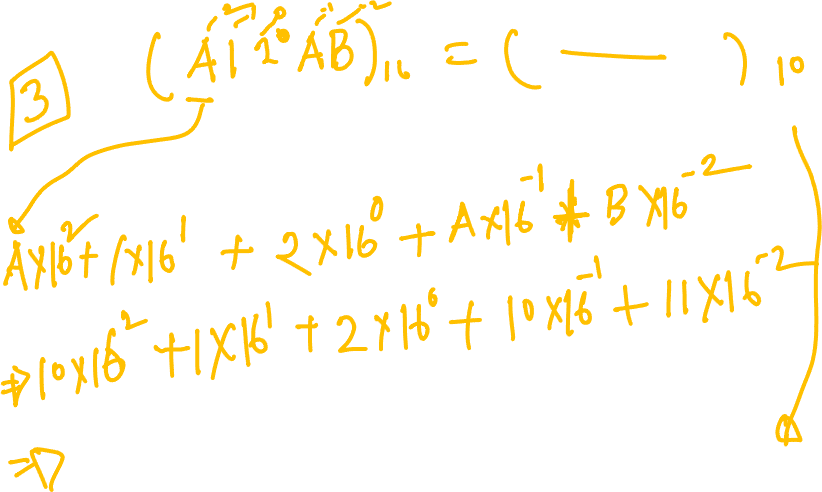 3 (A12.AB)₁₆ = ( — )₁₀
A×16²+1×16¹ + 2×16⁰ + A×16⁻¹ + B×16⁻²
⇒10×16² +1×16¹ + 2×16⁰ + 10×16⁻¹ + 11×16⁻²
⇒